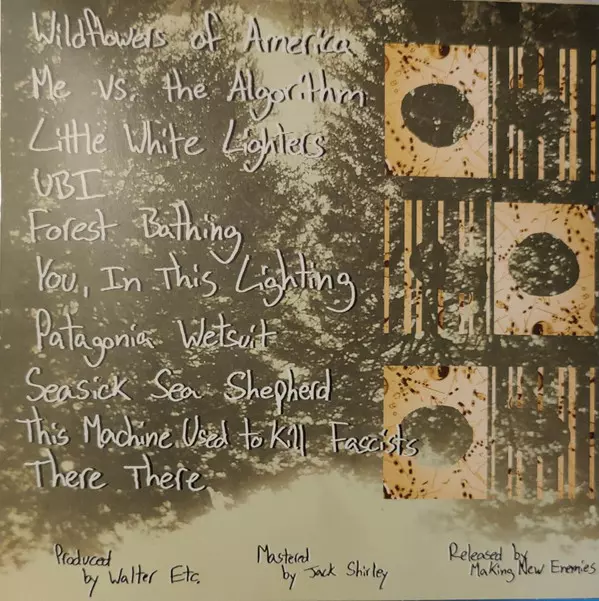 Wildflowers of America
Me vs. the Algorithm
Little White Lighters
UBI
Forest Bathing
You, In This Lighting
Patagonia Wetsuit
Seasick Sea Shepherd
This Machine Used to Kill Fascists
There There
Produced
by Walter Etc.
Mastered
by Jack Shirley
Released by
Making New Enemies